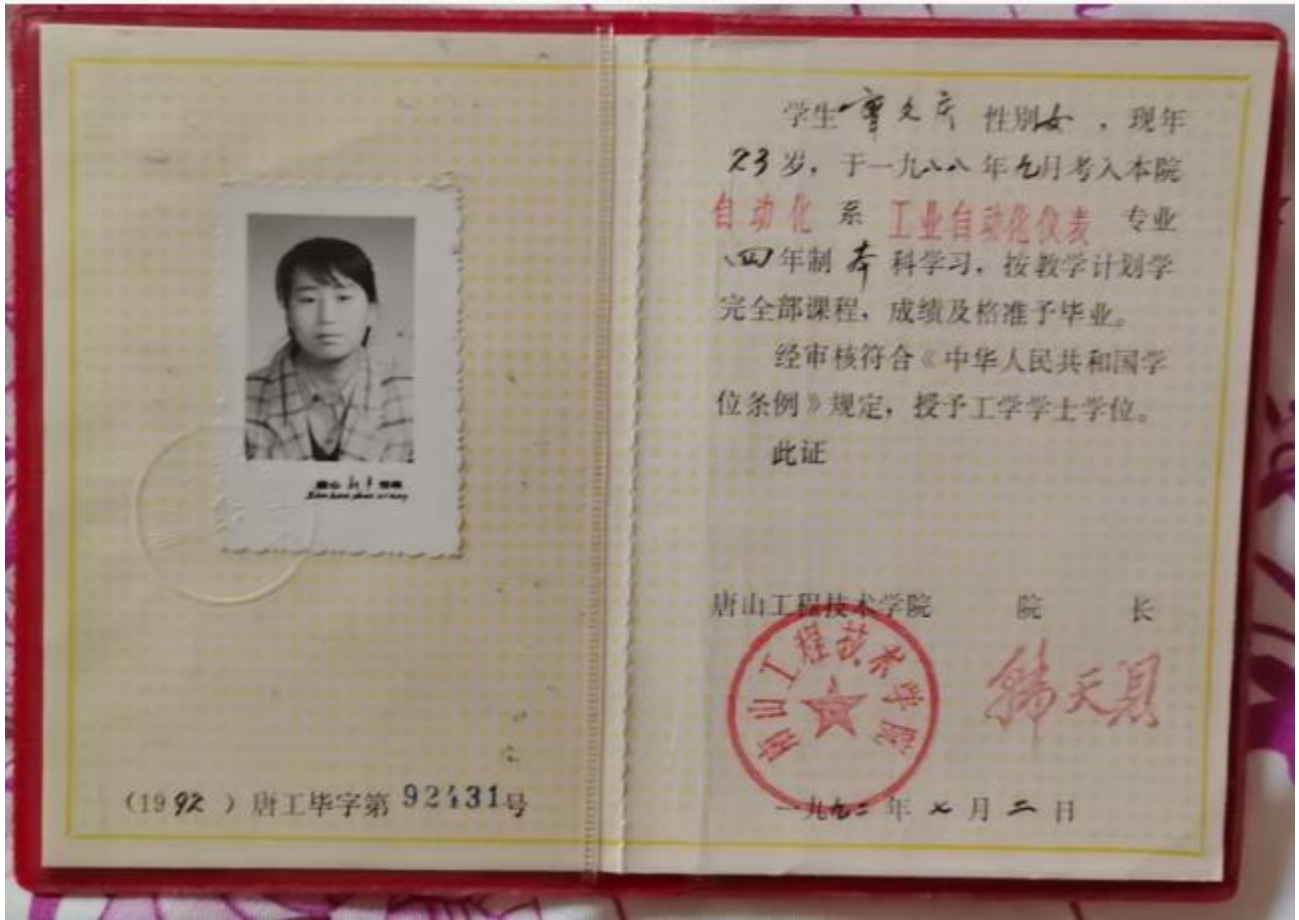 (1992)唐工毕字第 92431号
学生 性别女,现年
23岁,于一九八八年九月考入本院
自动化 系 工业自动化仪表 专业
四年制 本 科学习,按教学计划学
完全部课程,成绩及格准予毕业。
经审核符合《中华人民共和国学
位条例》规定,授予工学学士学位。
此证
唐山工程技术学院 院 长
唐山工程技术学院
一九九二年七月二日